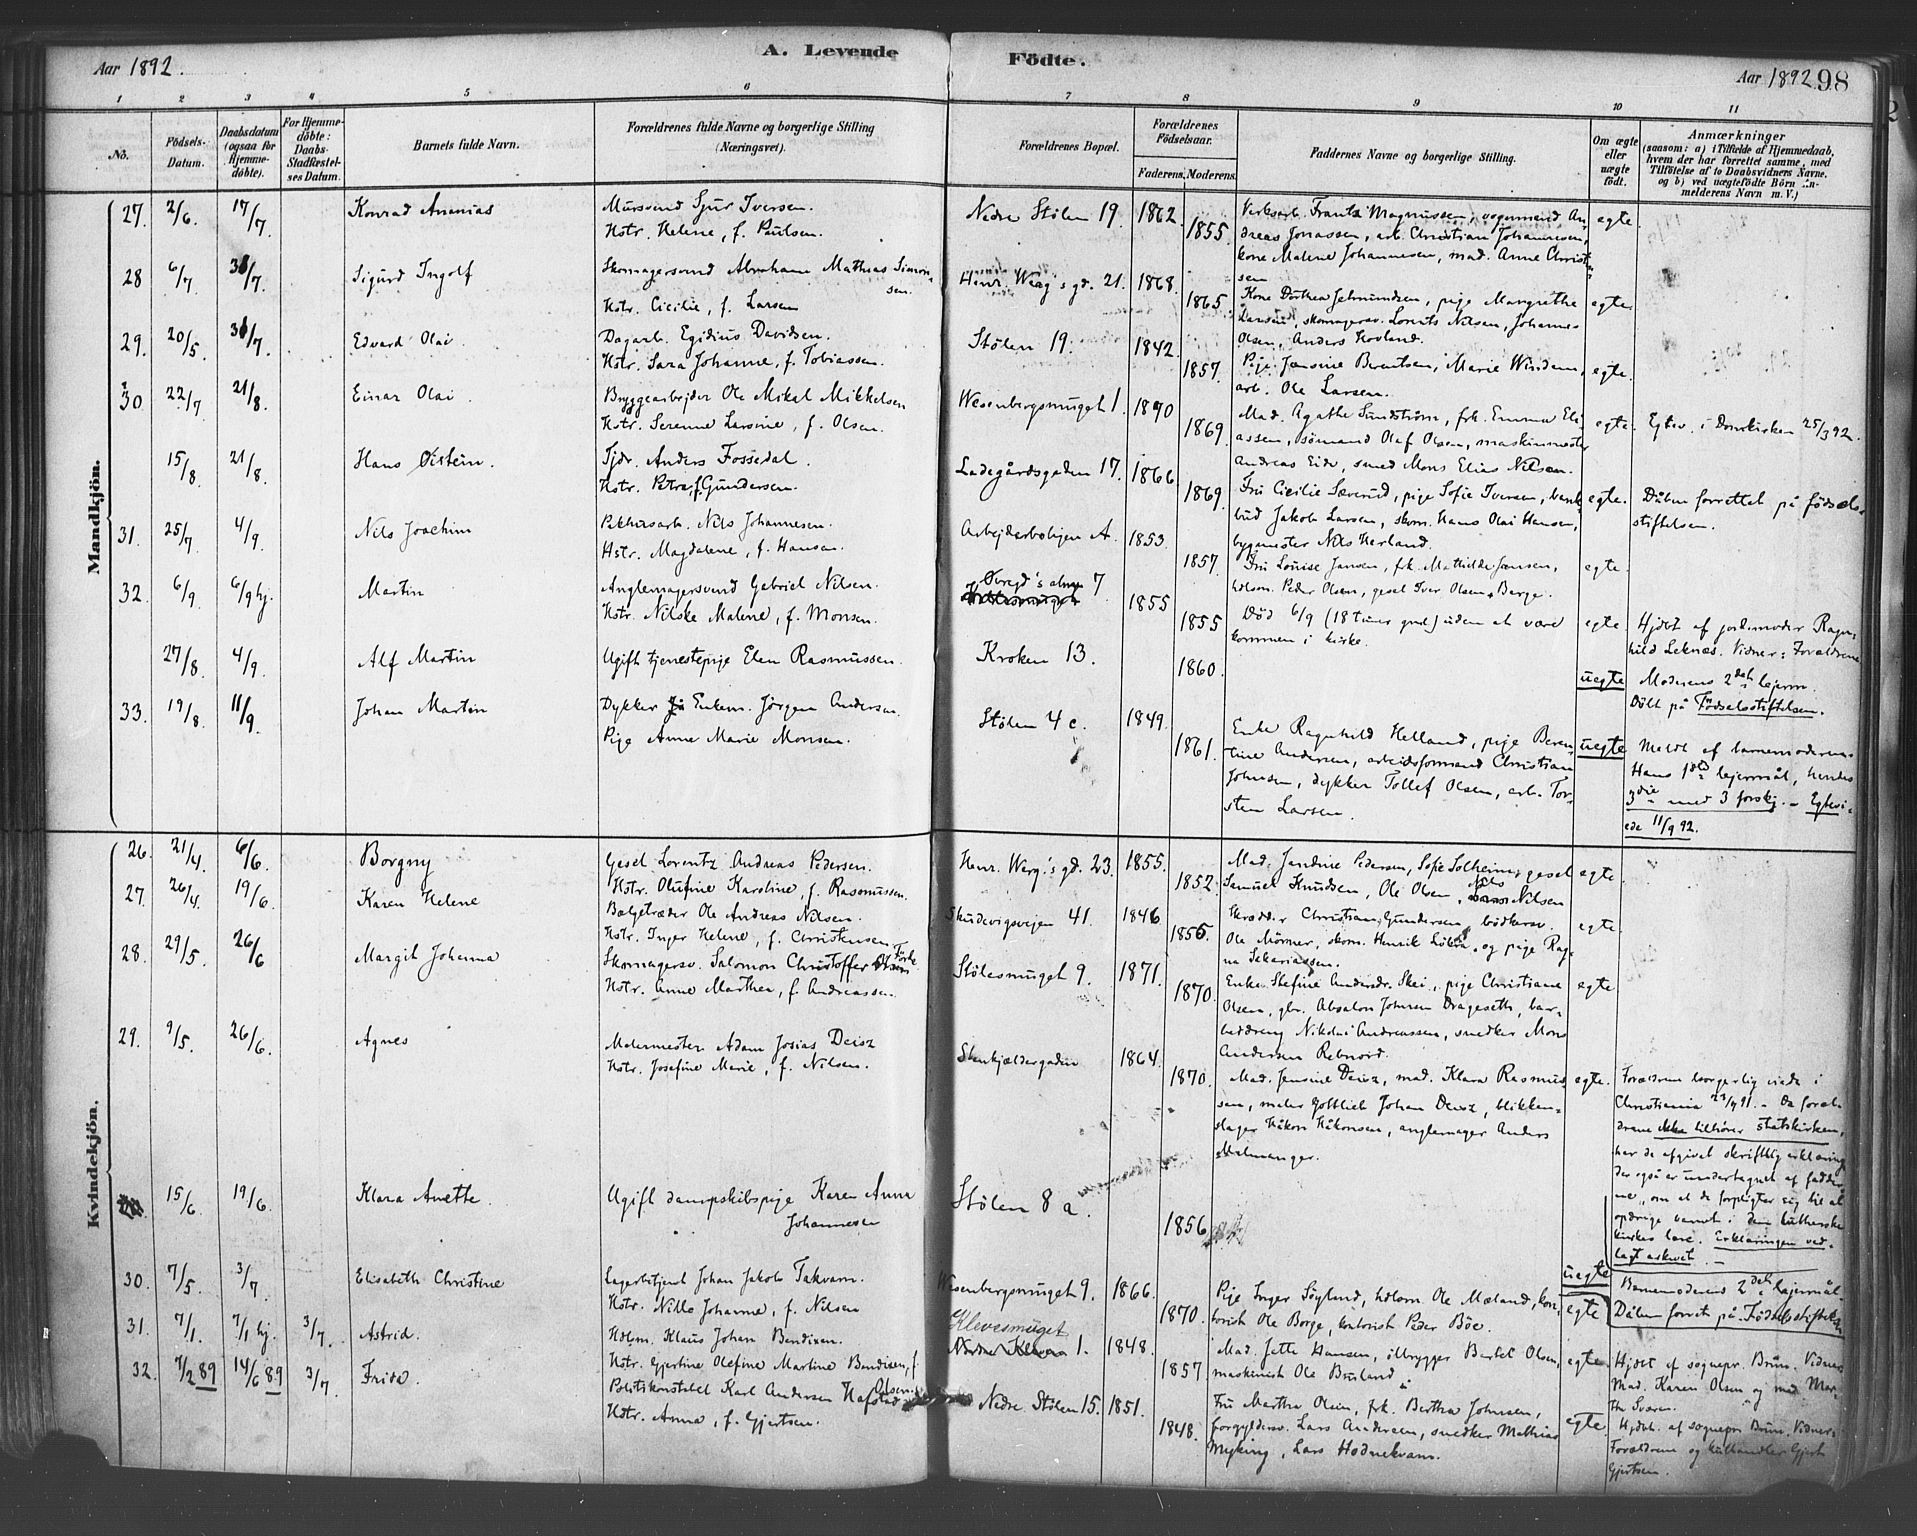 Aar 1892.
A. Levende
Födte.
Aar 1892 98
1 2 3 4 5 6 7 8 9 10 11
No.
Födsels-
Datum.
Daabsdatum
(ogsaa for
Hjemme-
döbte).
For Hjemme-
döbte:
Daabs-
Stadfæstel-
ses Datum.
Barnets fulde Navn.
Forældrenes fulde Navne og borgerlige Stilling
(Næringsvei).
Forældrenes Bopæl.
Forældrenes
Födselsaar.
Faderens. Moderens.
Faddernes Navne og borgerlige Stilling.
Om ægte
eller
uægte
födt.
Anmærkninger
(saasom: a) i Tilfælde af Hjemmedaab,
hvem der har forrettet samme, med
Tilföielse af to Daabsvidners Navne.
og b) ved uægtefödte Börn An-
melderens Navn m. V.)
Mandkjön.
27. 2/6 17/7 Konrad Ananias
Mursvend Sjur Iversen.
Hstr. Helene, f. Paulsen.
Nedre Stölen 19. 1862. 1855.
Verksarb. Frantz Magnussen, vognmand An-
dreas Jonassen, arb. Christian Johannesen,
kone Malene Johannesen, mad. Anne Christen-
sen
egte.
28 6/7 /7. Sigurd Ingolf
Skomagersvend Abraham Mathias Simon-
sen.
Hstr. Cicilie, f. Larsen
gd. 21. 1868. 1865
Kone Dorthea , pige Margrethe
Larsen, skomagersv. Lorents Nilsen, Johannes
Olsen, Anders Hovland.
egte.
29. 20/5 /7. Edvard Olai
Dagarb. Egidius Davidsen.
Hstr. Sara Johanne, f. Tobiassen.
Stölen 19. 1842. 1857.
Pige Jensine Berentsen, Marie Windem,
arb. Ole Larsen.
egte.
30. 22/7 21/8. Einar Olai
Bryggearbejder Ole Mikal Mikkelsen
Hstr. Serenne Larsine, f. Olsen.
Wesenbergsmuget 1. 1869.
Mad. Agathe Sundström, frk. Emma Eli-
assen, sömand Olaf Olsen, maskinmester
Andreas Eide, smed Mons Elias Nilsen.
egte. Egtev. i Domkirken 25/3 92.
15/8 21/8. Hans Öistein.
Tjdr. Anders Fossedal.
Hstr. Petra, f. Gundersen.
Ladegårdsgaden 17. 1866 1869
Fru Cicilie Sæverud, pige Sofie Iversen,
bud Jakob Larsen, skom. Hans Olai Hansen,
bygmester Nils Herland.
egte. Dåben forrettet på födsels-
stiftelsen.
31. 25/7 4/9. Nils Joachim
Nils Johannesen.
Hstr. Magdalene, f. Hansen.
Arbejderboligen A. 1853. 1857.
Fru Louise Jansen, frk. Mathilde Jansen,
hdlsm. Peder Olsen, gesel Iver Olsen Berge.
egte.
32. 6/9 6/9 hj. Martin
Anglemagersvend Gabriel Nilsen.
Hstr. Nilske Malene, f. Monsen.
Övregd's alm. 7 1855 1855
Död 6/9 (18 timer gml.) uden at være
kommen i kirke.
egte Hjdbt af jordemoder Ragn-
hild Leknæs. Vidner: Forældrene
27/8 4/9. Alf Martin
Ugift tjenestepige Elen Rasmussen.
Kroken 13. 1860.
uegte Moderens 2det lejerm.
Döbt på Födselsstiftelsen.
33. 19/8. 11/9. Johan Martin
Dykker Enkem. Jörgen Andersen.
Pige Anne Marie Monsen.
Stölen 4 c. 1849. 1861.
Enke Ragnhild Helland, pige Beren-
tine Andersen, arbeidsformand Christian
Johnsen, dykker Tollef Olsen, arb. Tor-
sten Larsen.
uegte Meldt af barnemoderen.
Hans 1ste lejermål, hendes
3die med 3 forskj. – Egtevi-
ede 11/9 92.
Kvindekjön.
26. 21/4. 6/6. Borgny
Gesel Lorentz Andreas Pedersen.
Hstr. Olufine Karoline, f. Rasmussen.
gd. 23. 1855. 1852.
Mad. Jandine Pedersen, Sofie Solheim, gesel
Samuel Knudsen, Ole Olsen, Nils Nilsen
egte.
27. 26/4. 19/6. Karen Helene
Bælgetræder Ole Andreas Nilsen.
Hstr. Inger Helene, f. Christensen
Skudevigsvejen 41. 1846
Skrædder Christian Gundersen, bödkersv.
Ole Mörner, skom. Henrik , og pige Rag-
na Sekariassen.
egte.
28. 29/5. 26/6 Margit Johanna
Skomagersv. Salomon Christoffer
Hstr. Anne Marthea, f. Andreassen.
Stölesmuget 9. 1871. 1870.
Enke Stefine Andersdr. Skei, pige Christiane
Olsen, gbr. Absalon Johnsen Drageseth, bar-
Nikolai Andreassen, snedker Mons
Andersen Rebnord.
egte
29. 9/5. 26/6. Agnes
Malermester Adam Josias Deisz
Hstr. Josefine Marie, f. Nilsen.
Stenkjældergaden 1864. 1870.
Mad. Jensine Deisz, mad. Klara Rasmus-
sen, maler Gottlieb Johan Deisz, blikken-
slager Håkon Håkonsen, anglemager Anders
Malmanger.
egte. Forældrene borgerlig viede i
Christiania 91. – Da foræl-
drene ikke tilhörer statskirken,
har de afgivet skriftlig erklæring
der også er undertegnet af fadder-
ne, om at de forpligter sig til at
opdrage barnet i den lutherske
kirkes lære. Erklæringen ved-
lagt arkivet. –
15/6. 19/6. Klara Anette.
Ugift dampskibspige Karen Anna
Johannesen
Stölen 8 a. 1856
uegte Barnemoderens 2det lejermål.
Dåben forret. på Födselsstiftelsen
30. 7/5. 3/7. Elisabeth Christine
Lagerbetjent Johan Jakob Takvam.
Hstr. Nille Johanne, f. Nilsen
Wesenbergsmuget 9. 1866. 1870.
Pige Inger Söylund, hdlsm. Ole Mæland, kon-
torist Ole Borge, kontorist Peder Böe.
egte
31. 7/1. 7/1 hj. 3/7. Astrid.
Hdlsm. Klaus Johan Bendixen.
Hstr. Gjertine Olefine Martine Bendixen, f.
Olsen.
Klevesmuget
1. 1848. 1857
Mad. Jette Hansen, ilbrygger Bertel Olsen,
maskinist Ole Bruland
egte. Hjdbt af sognepr. Brun. Vidner
Mad. Karen Olsen og mad. Mar-
the Sværen.
32. 7/2 89 14/6 89 3/7 Frida.
Politikonstabel Karl Andersen Hafstad
Hstr. Anna, f. Gjertsen.
Nedre Stölen 15. 1851. 1848.
Fru Martha Olsen, frk. Bertha Johnsen,
forgyldersv. Lars Andersen, snedker Mathias
Myking, Lars Hodnekvam.
egte. Hjdbt. af sognepr Brun. Vidner:
Forældrene og kulhandler Gjert
Gjertsen.